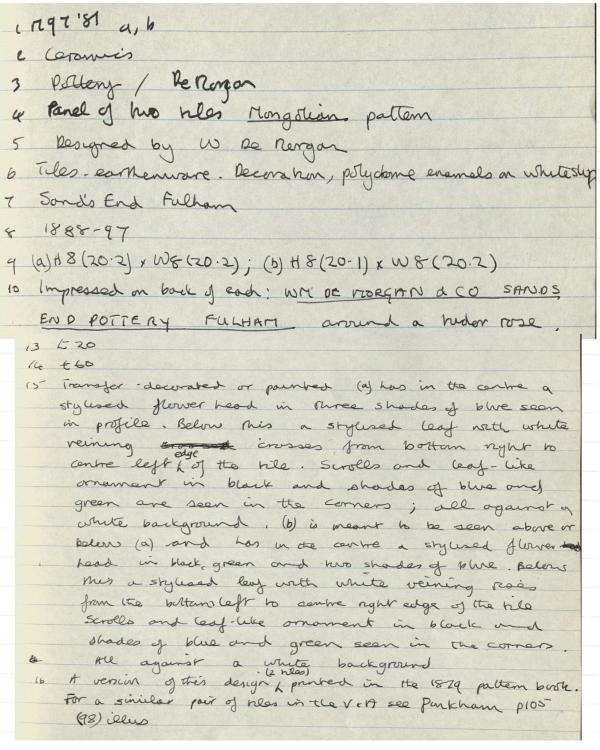 1 M97'81 a, b
2 Ceramics
3 Pottery / De Morgan
4 Panel of two tiles Mongolian pattern
5 Designed by W De Morgan
6 Tiles - earthenware. Decoration, polychrome enamels on white slip
7 Sand's End Fulham
8 1888-97
9 (a) H 8 (20.2) x W 8 (20.2); (b) H 8 (20.1) x W 8 (20.2)
10 Impressed on back of each: WM DE MORGAN & CO SANDS
END POTTERY FULHAM around a tudor rose.
13 £20
14 £60
15 Transfer-decorated or painted (a) has in the centre a
stylised flower head in three shades of blue seen
in profile. Below this a stylised leaf with white
veining crosses from bottom right to
centre left edge of the tile. Scrolls and leaf-like
ornament in black and shades of blue and
green are seen in the corners; all against a
white background. (b) is meant to be seen above or
below (a) and has in the centre a stylised flower
head in black, green and two shades of blue. Below
this a stylised leaf with white veining rises
from the bottom left to centre right edge of the tile
Scrolls and leaf-like ornament in black and
shades of blue and green seen in the corners.
All against a white background
16 A version of this design (2 tiles) printed in the 1879 pattern book.
For a similar pair of tiles in the V & A see Pinkham p105
(98) illus